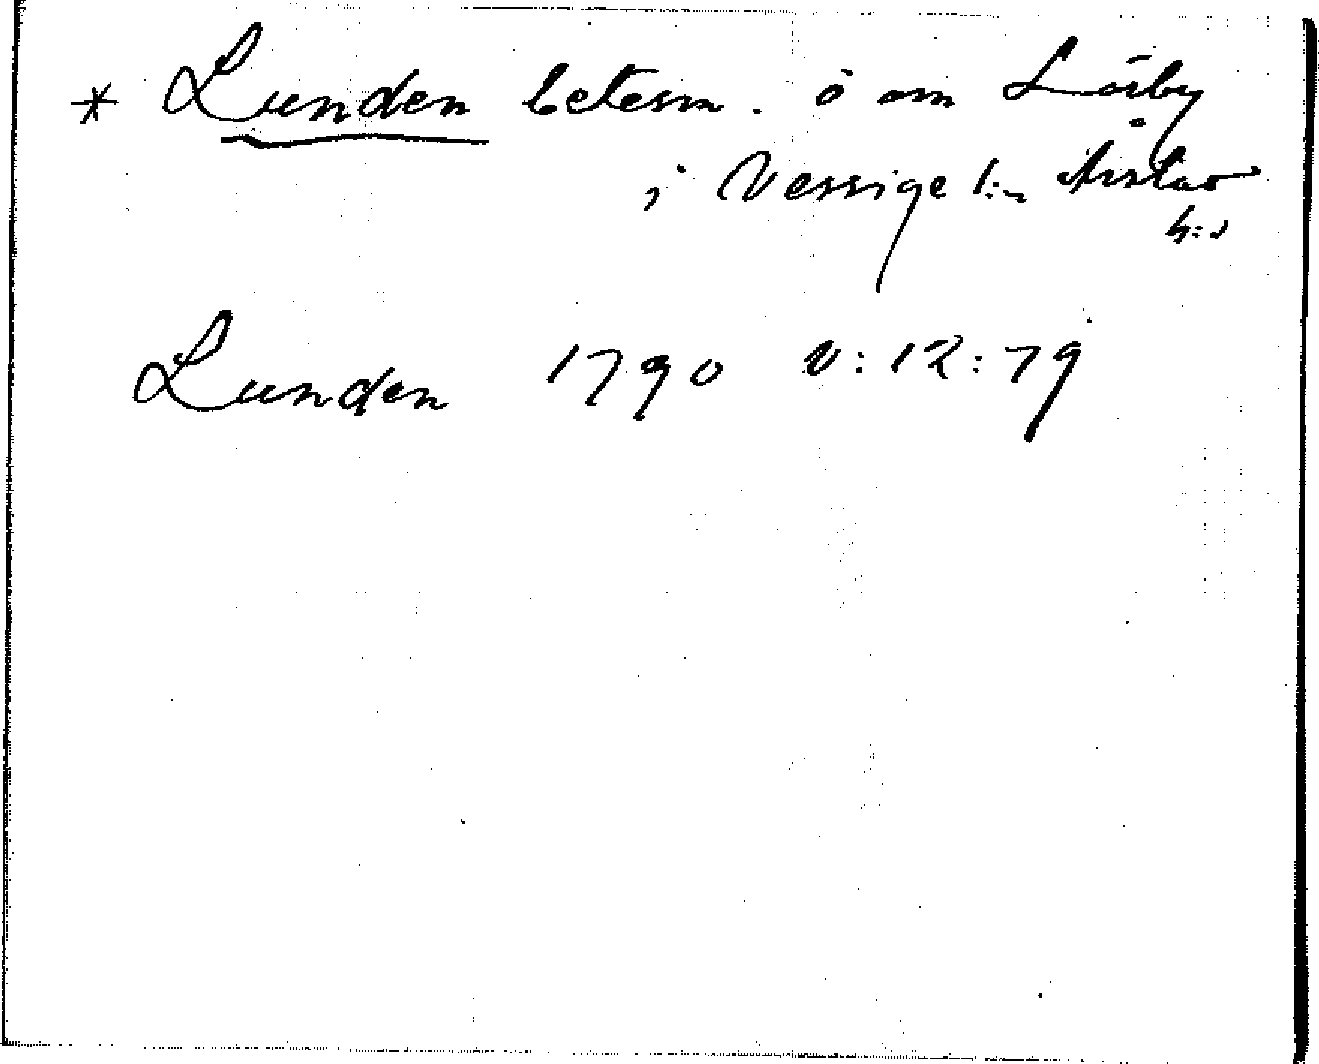 * Lunden betesm. ö om
i Vessige s:n Årstad
h:d
Lunden 1790 V:12:79